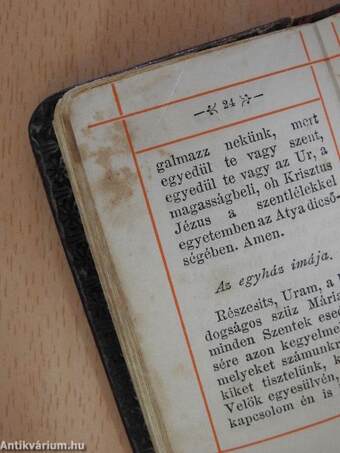 24
galmazz nekünk, mert
egyedül te vagy szent,
egyedül te vagy az Ur, a
magasságbeli, oh Krisztus
Jézus a szentlélekkel
egyetemben az Atya dicső-
ségében. Amen.
Az egyház imája.
Részesits, Uram, a
dogságos szüz Mária
minden Szentek
sére azon
melyeket
kiket tisztelünk,
Velök egyesülvén,
kapcsolom én is
Antikvárium.hu